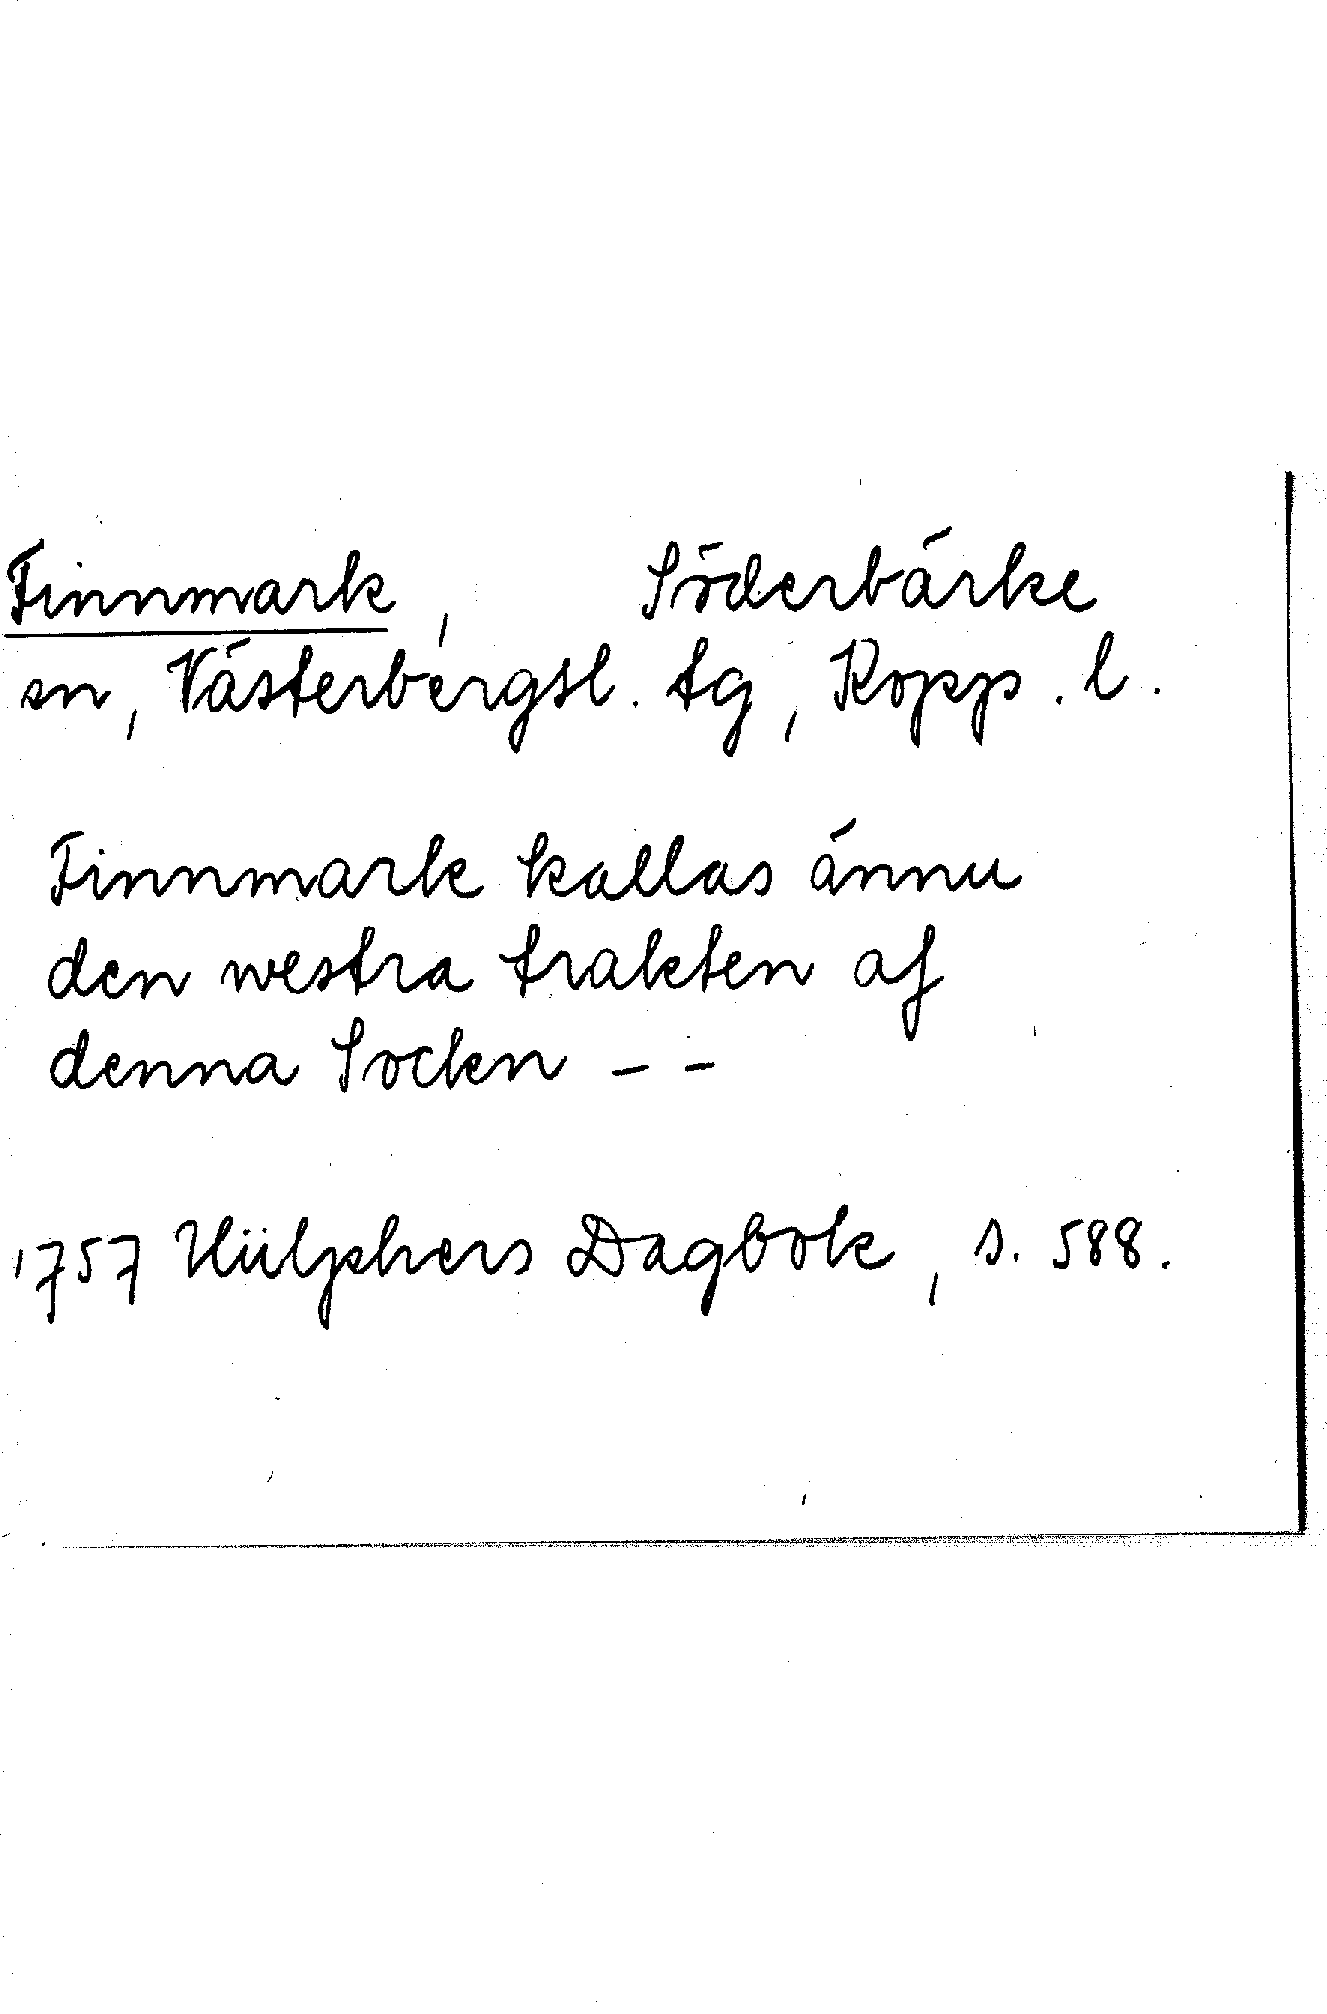 Finnmark, Söderbärke
sn, Västerbergsl. tg, Kopp. l.
Finnmark kallas ännu
den westra trakten af
denna Socken - -
1757 Hülphers Dagbok, s. 588.